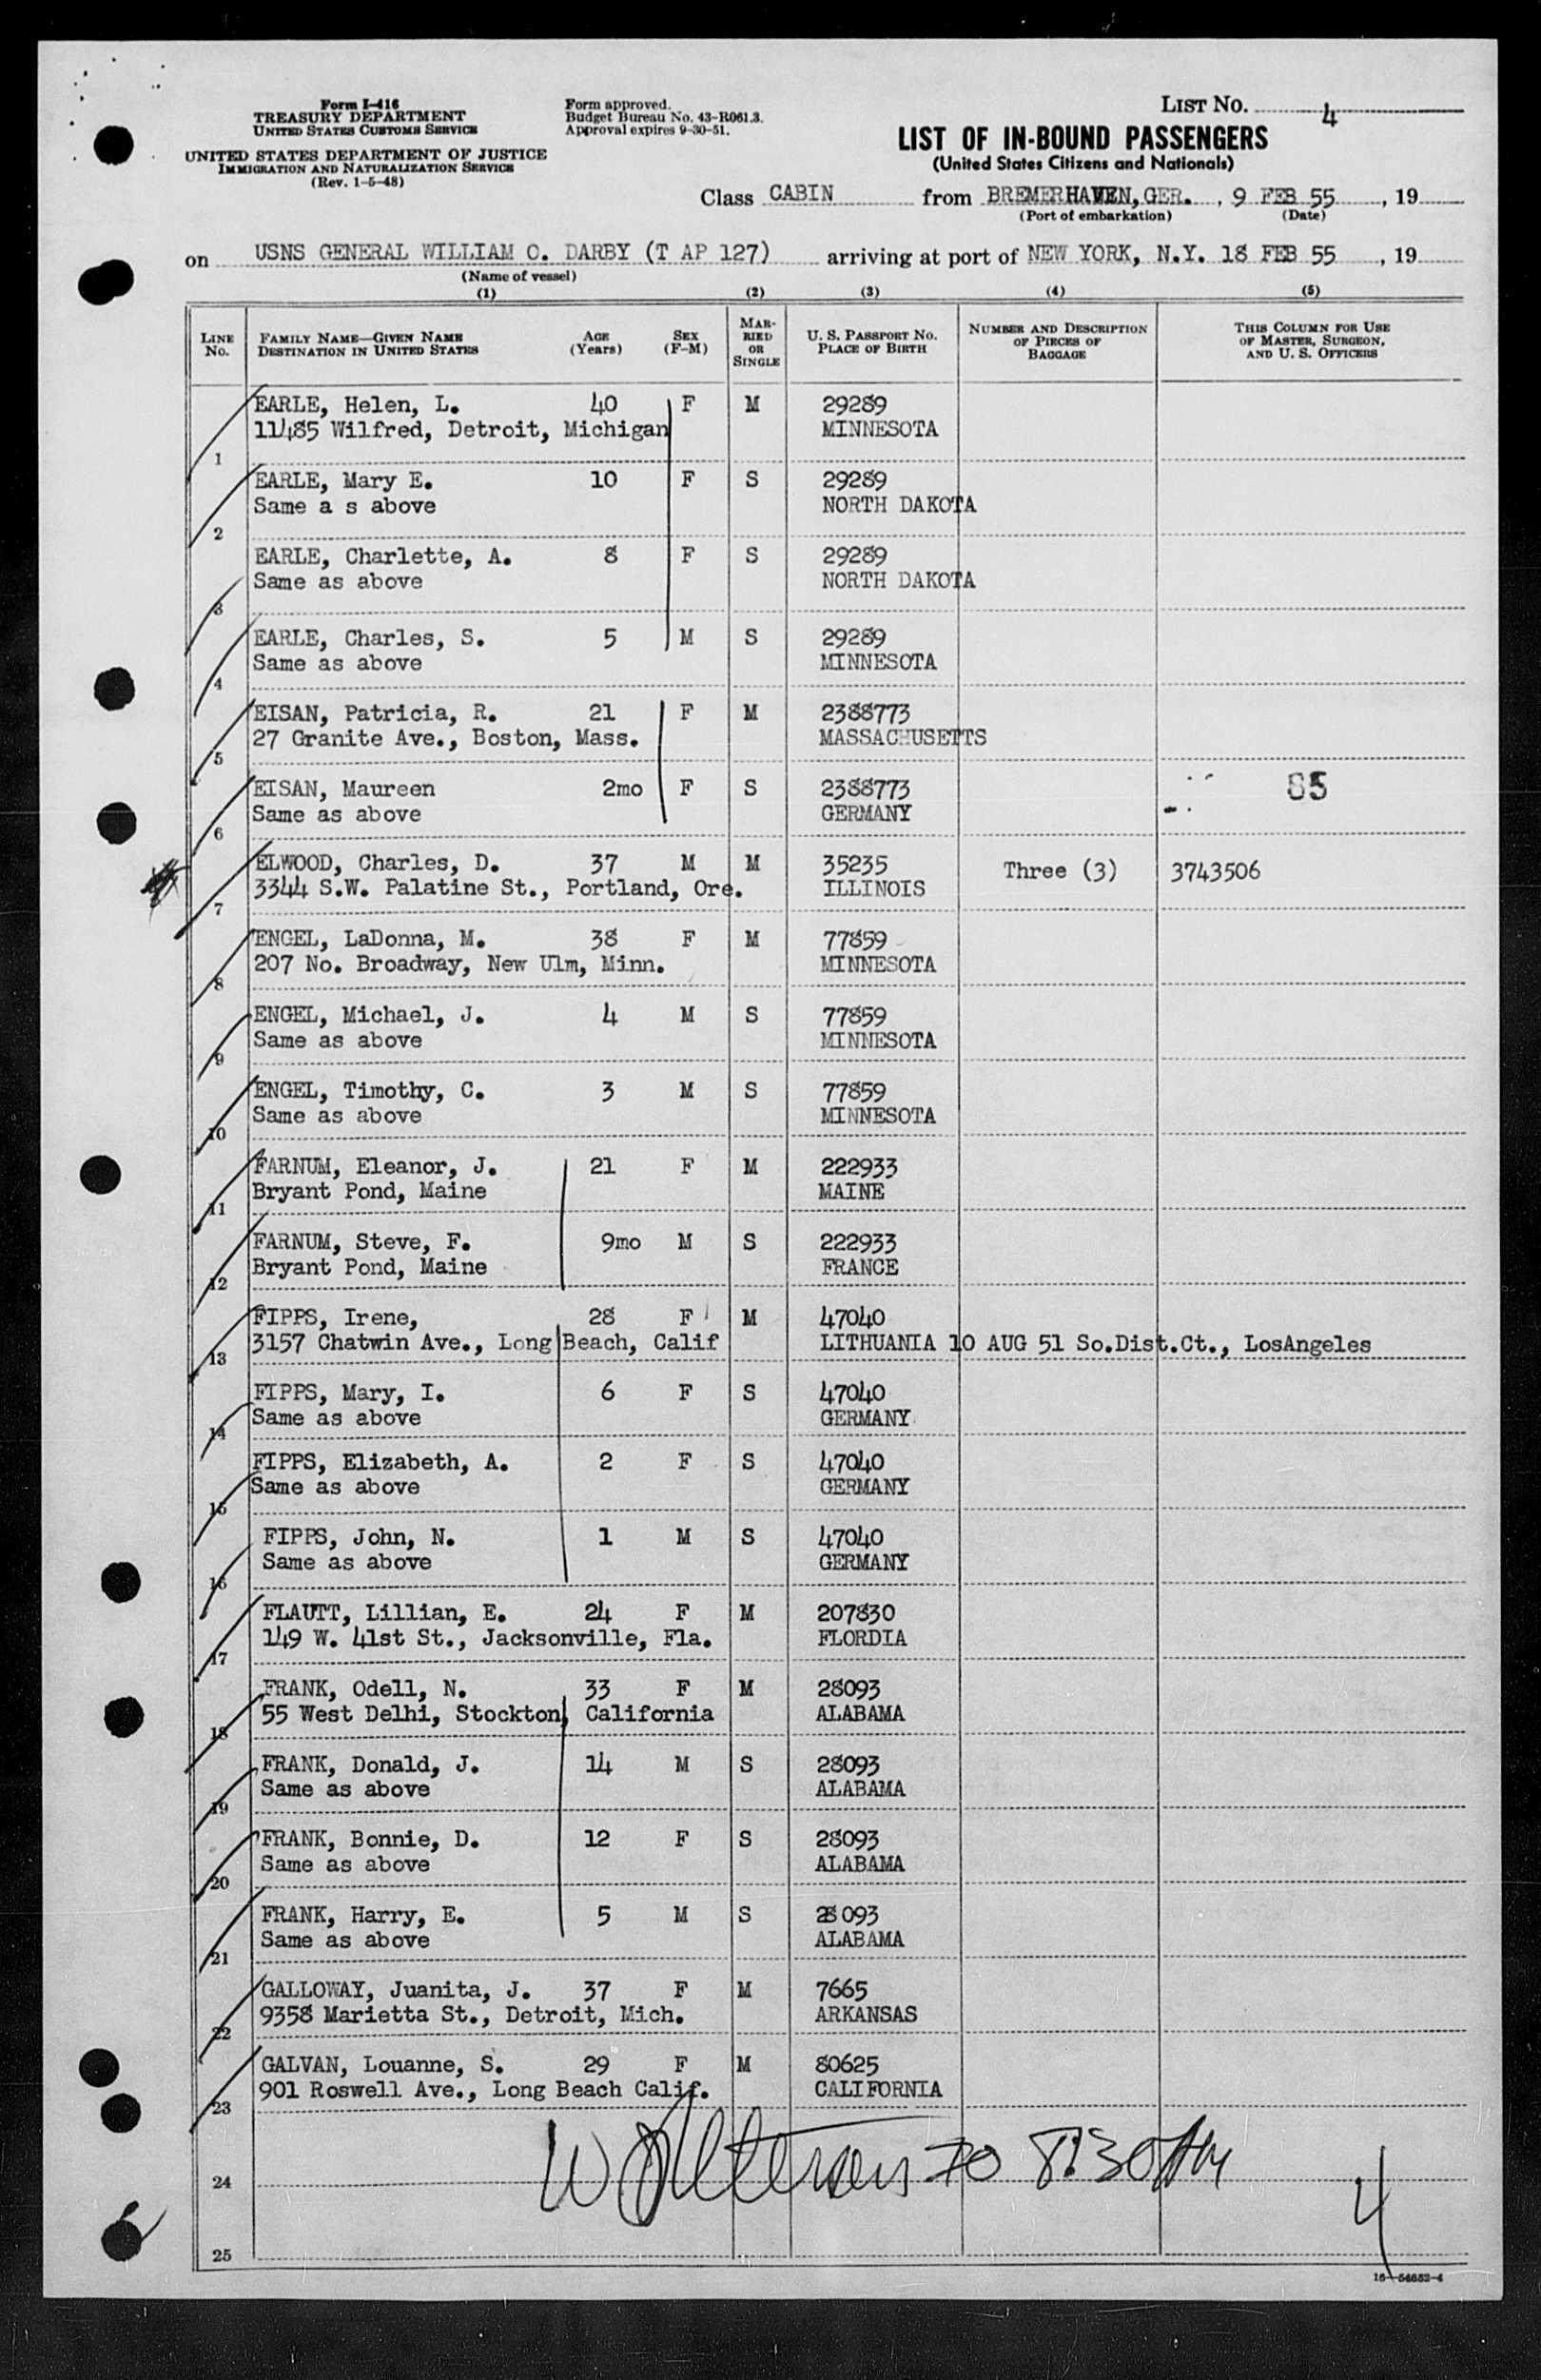 Form I-416
TREASURY DEPARTMENT
UNITED STATES CUSTOMS SERVICE
UNITED STATES DEPARTMENT OF JUSTICE
IMMIGRATION AND NATURALIZATION SERVICE
(Rev. 1-5-48)
Form approved.
Budget Bureau No. 43-R061.3.
Approval expires 9-30-51.
LIST NO. 4
LIST OF IN-BOUND PASSENGERS
(United States Citizens and Nationals)
Class CABIN from BREMERHAVEN, GER. , 9 FEB 55 , 19
(Port of embarkation) (Date)
on USNS GENERAL WILLIAM O. DARBY (T AP 127) arriving at port of NEW YORK, N.Y. 18 FEB 55 , 19
(Name of vessel)
(1) (2) (3) (4) (5)
LINE NO. FAMILY NAME—GIVEN NAME DESTINATION IN UNITED STATES AGE (Years) SEX (F-M) MARRIED OR SINGLE U. S. PASSPORT NO. PLACE OF BIRTH NUMBER AND DESCRIPTION OF PIECES OF BAGGAGE THIS COLUMN FOR USE OF MASTER, SURGEON, AND U. S. OFFICERS
EARLE, Helen, L. 40 F M 29289
11485 Wilfred, Detroit, Michigan MINNESOTA
1
EARLE, Mary E. 10 F S 29289
Same a s above NORTH DAKOTA
2
EARLE, Charlette, A. 8 F S 29289
Same as above NORTH DAKOTA
3
EARLE, Charles, S. 5 M S 29289
Same as above MINNESOTA
4
EISAN, Patricia, R. 21 F M 2388773
27 Granite Ave., Boston, Mass. MASSACHUSETTS
5
EISAN, Maureen 2mo F S 2388773 85
Same as above GERMANY
6
ELWOOD, Charles, D. 37 M M 35235 Three (3) 3743506
3344 S.W. Palatine St., Portland, Ore. ILLINOIS
7
ENGEL, LaDonna, M. 38 F M 77859
207 No. Broadway, New Ulm, Minn. MINNESOTA
8
ENGEL, Michael, J. 4 M S 77859
Same as above MINNESOTA
9
ENGEL, Timothy, C. 3 M S 77859
Same as above MINNESOTA
10
FARNUM, Eleanor, J. 21 F M 222933
Bryant Pond, Maine MAINE
11
FARNUM, Steve, F. 9mo M S 222933
Bryant Pond, Maine FRANCE
12
FIPPS, Irene, 28 F M 47040
3157 Chatwin Ave., Long Beach, Calif LITHUANIA 10 AUG 51 So.Dist.Ct., LosAngeles
13
FIPPS, Mary, I. 6 F S 47040
Same as above GERMANY
14
FIPPS, Elizabeth, A. 2 F S 47040
Same as above GERMANY
15
FIPPS, John, N. 1 M S 47040
Same as above GERMANY
16
FLAUTT, Lillian, E. 24 F M 207830
149 W. 41st St., Jacksonville, Fla. FLORDIA
17
FRANK, Odell, N. 33 F M 28093
55 West Delhi, Stockton, California ALABAMA
18
FRANK, Donald, J. 14 M S 28093
Same as above ALABAMA
19
FRANK, Bonnie, D. 12 F S 28093
Same as above ALABAMA
20
FRANK, Harry, E. 5 M S 28093
Same as above ALABAMA
21
GALLOWAY, Juanita, J. 37 F M 7665
9358 Marietta St., Detroit, Mich. ARKANSAS
22
GALVAN, Louanne, S. 29 F M 80625
901 Roswell Ave., Long Beach Calif. CALIFORNIA
23
8:30 AM
24
4
25
16—54652-4